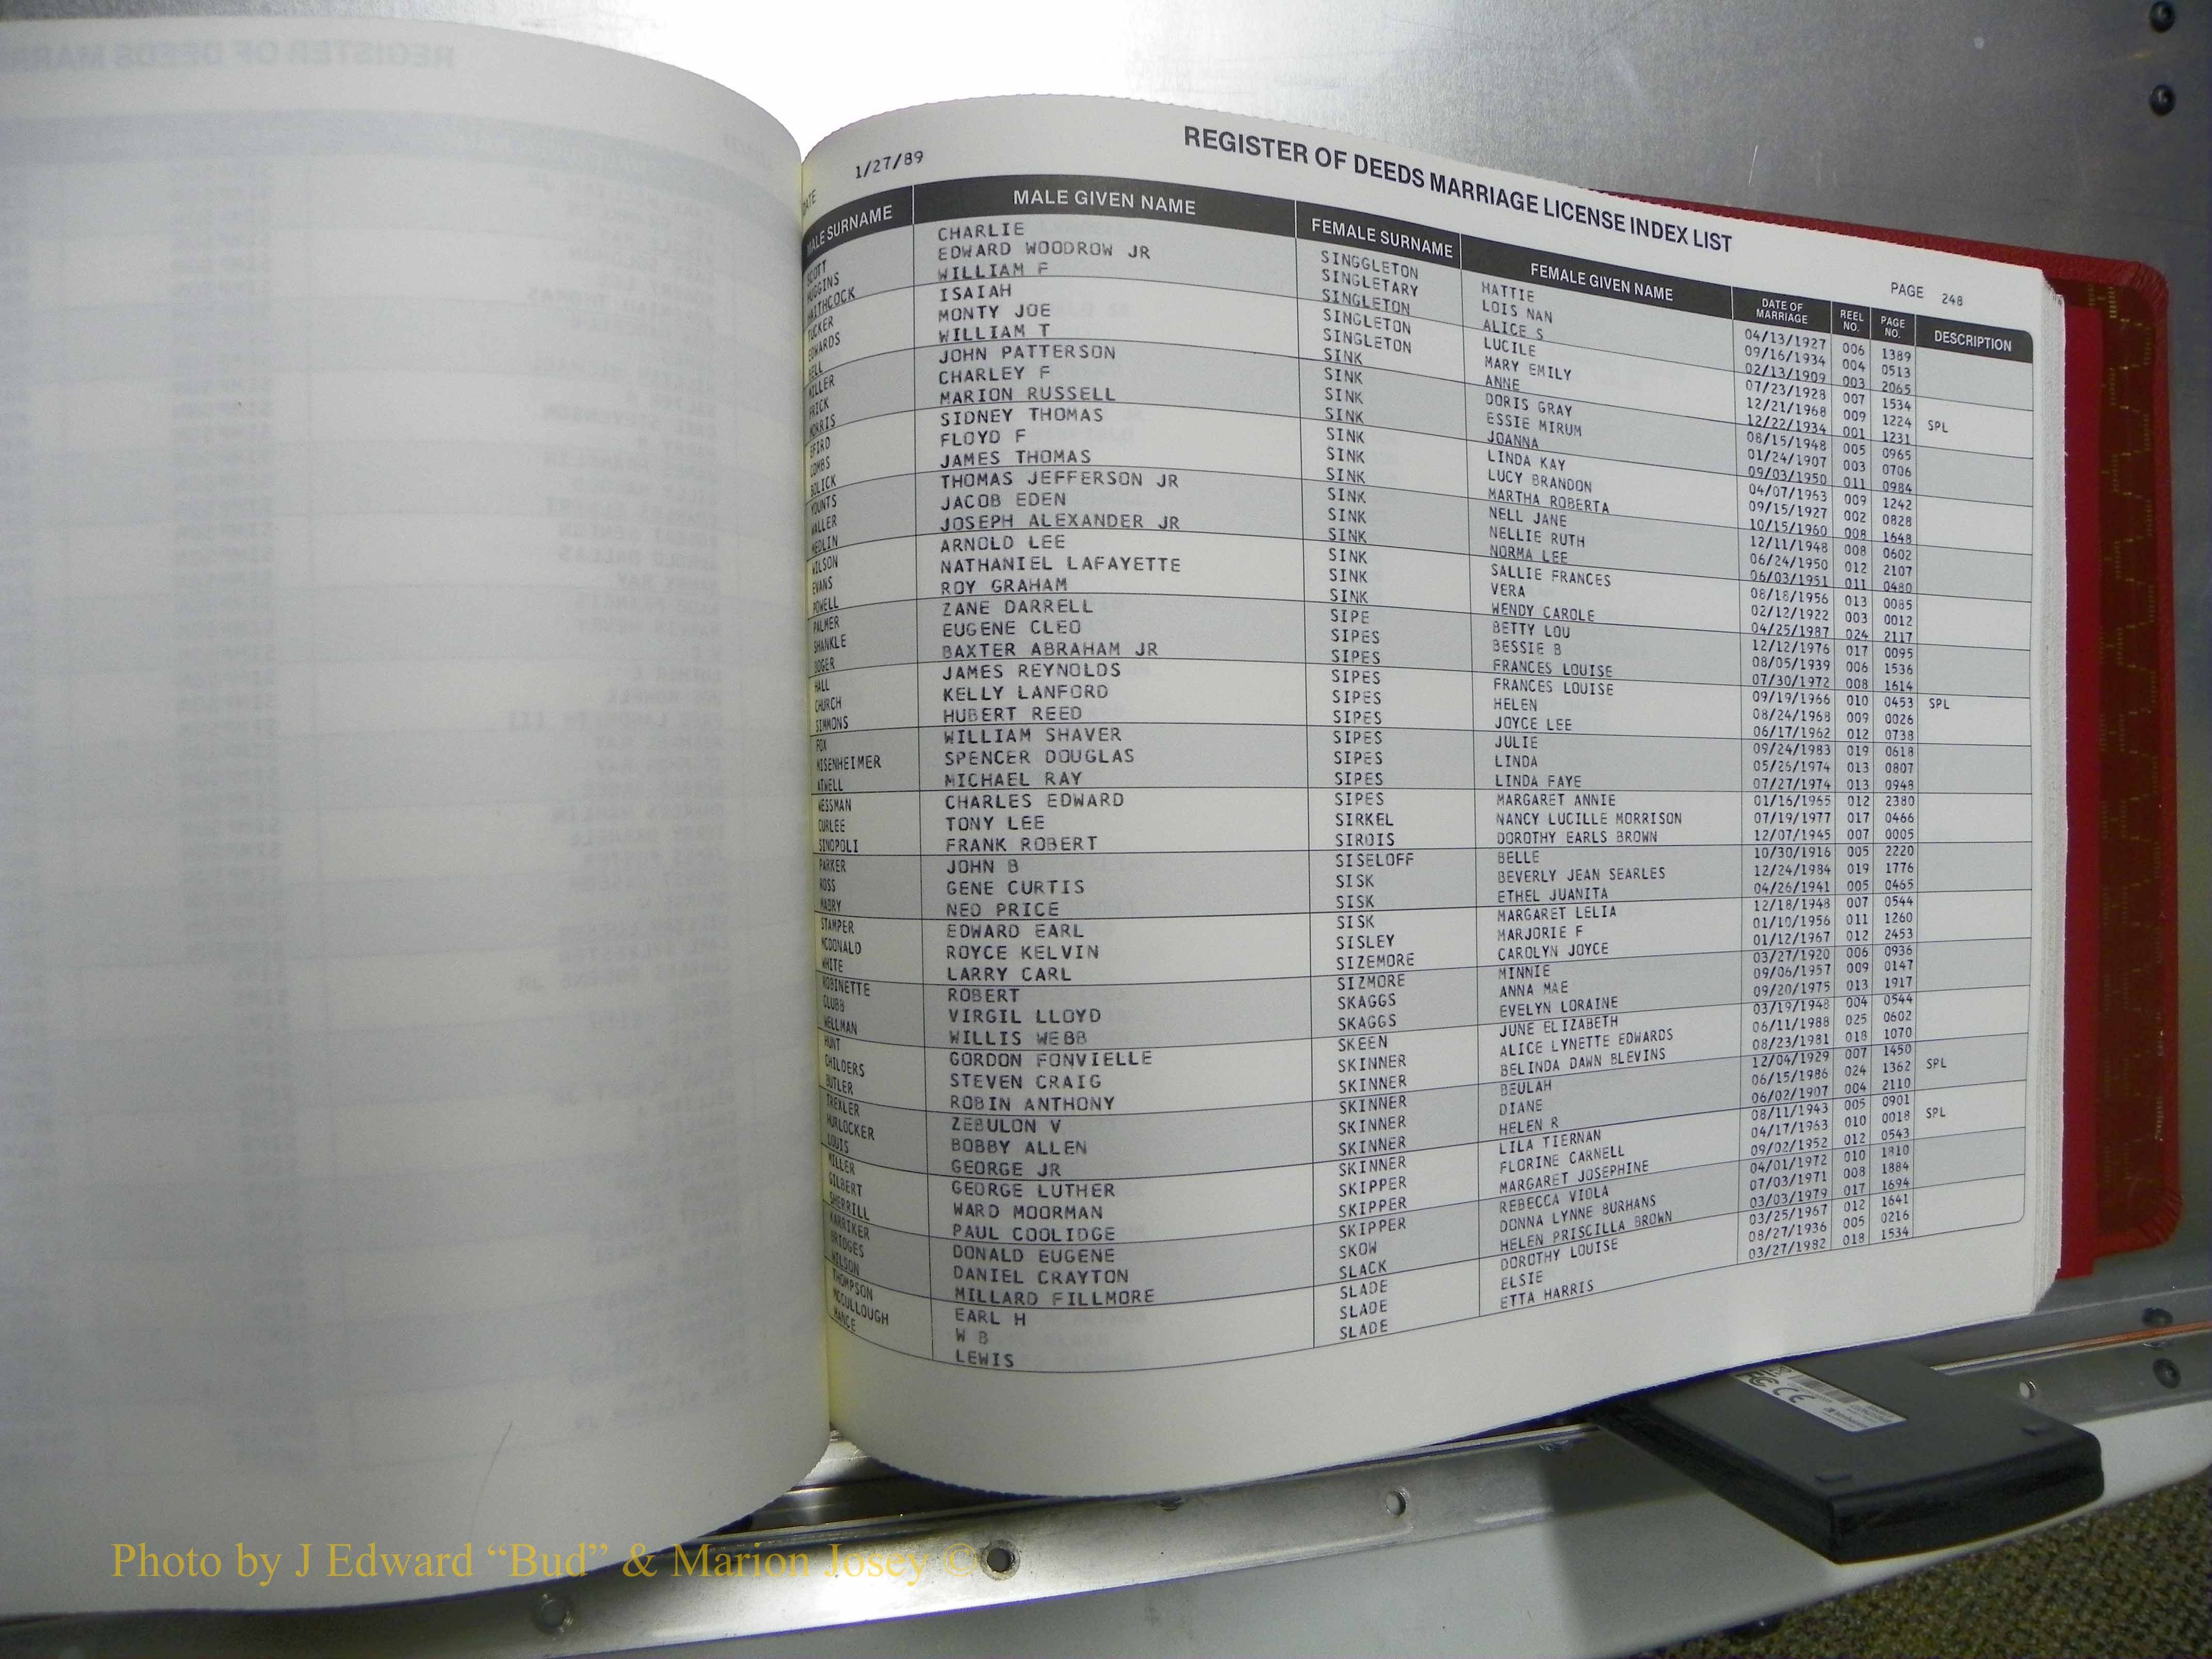 REGISTER OF DEEDS MARRIAGE LICENSE INDEX LIST
DATE 1/27/89 PAGE 248
MALE SURNAME MALE GIVEN NAME FEMALE SURNAME FEMALE GIVEN NAME DATE OF MARRIAGE REEL NO. PAGE NO. DESCRIPTION
SCOTT CHARLIE SINGGLETON HATTIE 04/13/1927 006 1389
HUGGINS EDWARD WOODROW JR SINGLETARY LOIS NAN 09/16/1934 004 0513
HAITHCOCK WILLIAM F SINGLETON ALICE S 02/13/1909 003 2065
TUCKER ISAIAH SINGLETON LUCILE 07/23/1928 007 1534
EDWARDS MONTY JOE SINGLETON MARY EMILY 12/21/1968 009 1224 SPL
BELL WILLIAM T SINK ANNE 12/22/1934 001 1231
MILLER JOHN PATTERSON SINK DORIS GRAY 08/15/1948 005 0965
FRICK CHARLEY F SINK ESSIE MIRUM 01/24/1907 003 0706
MORRIS MARION RUSSELL SINK JOANNA 09/03/1950 011 0984
EFIRD SIDNEY THOMAS SINK LINDA KAY 04/07/1963 009 1242
COMBS FLOYD F SINK LUCY BRANDON 09/15/1927 002 0828
BOLICK JAMES THOMAS SINK MARTHA ROBERTA 10/15/1960 008 1648
YOUNTS THOMAS JEFFERSON JR SINK NELL JANE 12/11/1948 008 0602
WALLER JACOB EDEN SINK NELLIE RUTH 06/24/1950 012 2107
MEDLIN JOSEPH ALEXANDER JR SINK NORMA LEE 06/03/1951 011 0480
WILSON ARNOLD LEE SINK SALLIE FRANCES 08/18/1956 013 0085
EVANS NATHANIEL LAFAYETTE SINK VERA 02/12/1922 003 0012
POWELL ROY GRAHAM SINK WENDY CAROLE 04/25/1987 024 2117
PALMER ZANE DARRELL SIPE BETTY LOU 12/12/1976 017 0095
SHANKLE EUGENE CLEO SIPES BESSIE B 08/05/1939 006 1536
BOGER BAXTER ABRAHAM JR SIPES FRANCES LOUISE 07/30/1972 008 1614
HALL JAMES REYNOLDS SIPES FRANCES LOUISE 09/19/1966 010 0453 SPL
CHURCH KELLY LANFORD SIPES HELEN 08/24/1968 009 0026
SIMMONS HUBERT REED SIPES JOYCE LEE 06/17/1962 012 0738
FOX WILLIAM SHAVER SIPES JULIE 09/24/1983 019 0618
MISENHEIMER SPENCER DOUGLAS SIPES LINDA 05/26/1974 013 0807
ATWELL MICHAEL RAY SIPES LINDA FAYE 07/27/1974 013 0948
MESSMAN CHARLES EDWARD SIPES MARGARET ANNIE 01/16/1965 012 2380
CURLEE TONY LEE SIRKEL NANCY LUCILLE MORRISON 07/19/1977 017 0466
SINOPOLI FRANK ROBERT SIROIS DOROTHY EARLS BROWN 12/07/1945 007 0005
PARKER JOHN B SISELOFF BELLE 10/30/1916 005 2220
ROSS GENE CURTIS SISK BEVERLY JEAN SEARLES 12/24/1984 019 1776
MABRY NED PRICE SISK ETHEL JUANITA 04/26/1941 005 0465
STAMPER EDWARD EARL SISK MARGARET LELIA 12/18/1948 007 0544
MCDONALD ROYCE KELVIN SISLEY MARJORIE F 01/10/1956 011 1260
WHITE LARRY CARL SIZEMORE CAROLYN JOYCE 01/12/1967 012 2453
ROBINETTE ROBERT SIZMORE MINNIE 03/27/1920 006 0936
CLUBB VIRGIL LLOYD SKAGGS ANNA MAE 09/06/1957 009 0147
WELLMAN WILLIS WEBB SKAGGS EVELYN LORAINE 09/20/1975 013 1917
HUNT GORDON FONVIELLE SKEEN JUNE ELIZABETH 03/19/1948 004 0544
CHILDERS STEVEN CRAIG SKINNER ALICE LYNETTE EDWARDS 06/11/1988 025 0602
BUTLER ROBIN ANTHONY SKINNER BELINDA DAWN BLEVINS 08/23/1981 018 1070
TREXLER ZEBULON V SKINNER BEULAH 12/04/1929 007 1450
HURLOCKER BOBBY ALLEN SKINNER DIANE 06/15/1986 024 1362 SPL
LOUIS GEORGE JR SKINNER HELEN R 06/02/1907 004 2110
MILLER GEORGE LUTHER SKINNER LILA TIERNAN 08/11/1943 005 0901
GILBERT WARD MOORMAN SKIPPER FLORINE CARNELL 04/17/1963 010 0018 SPL
SHERRILL PAUL COOLIDGE SKIPPER MARGARET JOSEPHINE 09/02/1952 012 0543
KARRIKER DONALD EUGENE SKIPPER REBECCA VIOLA 04/01/1972 010 1810
BRIDGES DANIEL CRAYTON SKOW DONNA LYNNE BURHANS 07/03/1971 008 1884
WILSON MILLARD FILLMORE SLACK HELEN PRISCILLA BROWN 03/03/1979 017 1694
THOMPSON EARL H SLADE DOROTHY LOUISE 03/25/1967 012 1641
MCCULLOUGH W B SLADE ELSIE 08/27/1936 005 0216
NANCE LEWIS SLADE ETTA HARRIS 03/27/1982 018 1534
Photo by J Edward “Bud” & Marion Josey ©